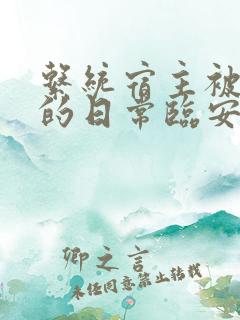 系統宿主被
的日常臨安
卿之言
未经同意禁止转载